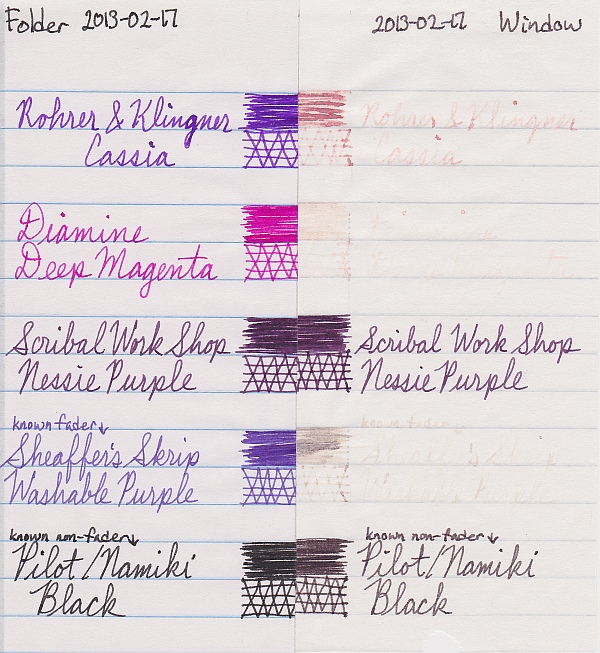 Folder 2013-02-17
2013-02-17 Window
Rohrer & Klingner
Cassia
Rohrer & Klingner
Cassia
Diamine
Deep Magenta
Scribal Work Shop
Nessie Purple
Scribal Work Shop
Nessie Purple
known fader↓
Sheaffer's Skrip
Washable Purple
known fader↓
known non-fader↓
Pilot/Namiki
Black
known non-fader↓
Pilot/Namiki
Black